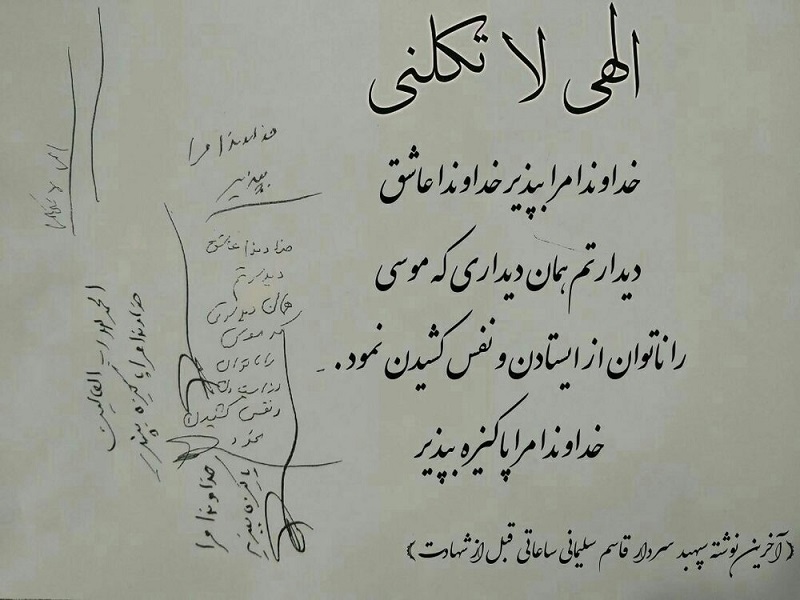 الهی لا تکلنی
خداوندا مرا بپذیر خداوندا عاشق
دیدارتم همان دیداری که موسی
را ناتوان از ایستادن و نفس کشیدن نمود.
خداوندا مرا پاکیزه بپذیر
(آخرین نوشته سپهبد سردار قاسم سلیمانی ساعاتی قبل از شهادت)
خداوندا مرا
بپذیر
خداوندا عاشق
دیدارتم
همان دیداری
که موسی
را ناتوان
و نفس کشیدن
نمود
خداوندا مرا
پاکیزه بپذیر
الحمدلله رب العالمین
خداوندا مرا پاکیزه بپذیر
الهی لا تکلنی